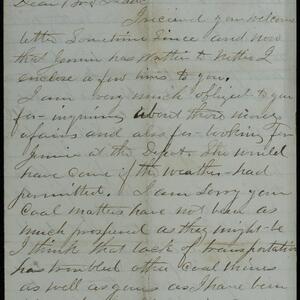 Dear
I recieved your welcome
letter Sometime Since and now
that Jennie has written to Nettie I
enclose a few lines to you.
I am very much obliged to you
for inquiring about there money
affairs and also for looking for
Jennie at the Depot. She would
have come if the weather had
permitted. I am sorry your
Coal matters have not been as
much prospered as they might be
I think that lack of transportation
has troubled other Coal mines
as well as yours as I have been